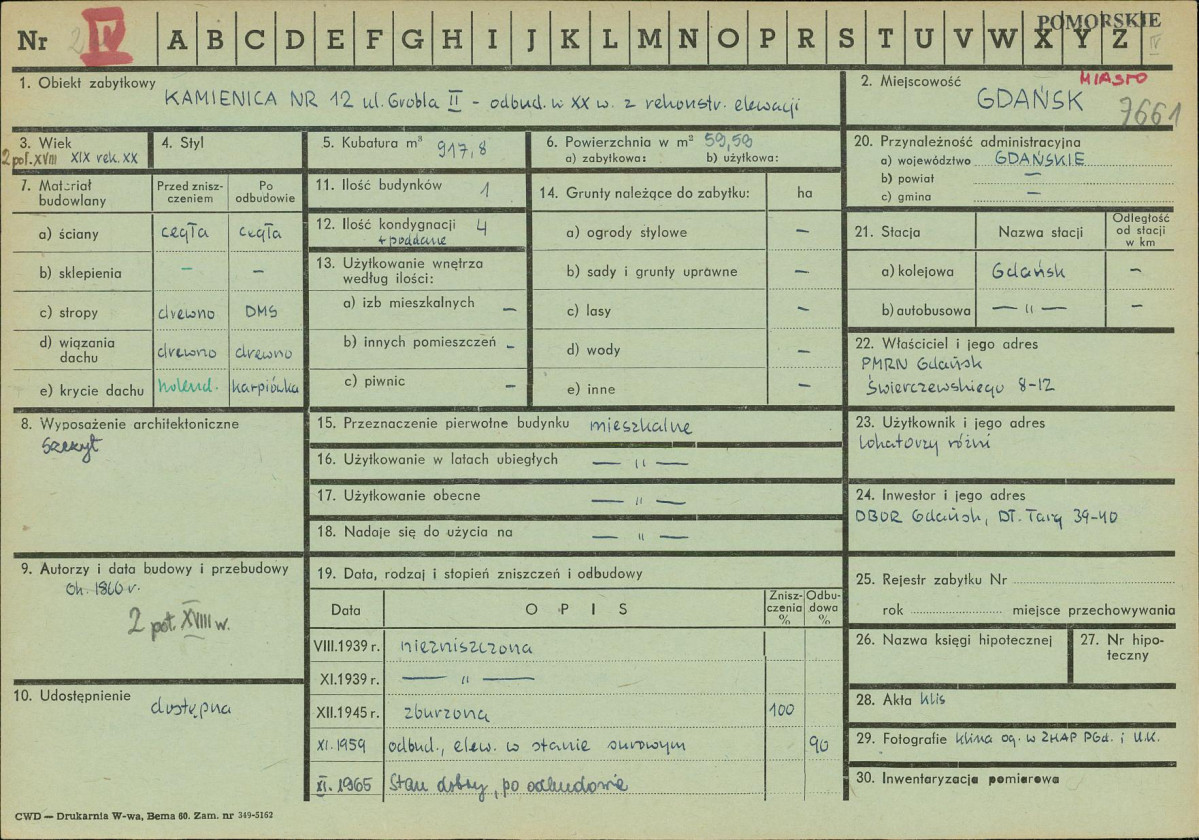 POMORSKIE
Nr 2 IV A B C D E F G H I J K L M N O P R S T U V W X Y Z IV
1. Obiekt zabytkowy KAMIENICA NR 12 ul. Grobla II - odbud. w XX w. z rekonstr. elewacji
2. Miejscowość MIASTO
GDAŃSK 7661
3. Wiek
2 poł. XVIII XIX rek. XX
4. Styl
5. Kubatura m³ 917,8
6. Powierzchnia w m² 59,59
a) zabytkowa: b) użytkowa:
7. Materiał budowlany
Przed zniszczeniem
Po odbudowie
a) ściany cegła cegła
b) sklepienia – –
c) stropy drewno DMS
d) wiązania dachu drewno drewno
e) krycie dachu holend. karpiówka
8. Wyposażenie architektoniczne
szczyt
9. Autorzy i data budowy i przebudowy
ok. 1860 r.
2 poł. XVIII w.
10. Udostępnienie
dostępna
11. Ilość budynków 1
12. Ilość kondygnacji 4
+ poddasze
13. Użytkowanie wnętrza
według ilości:
a) izb mieszkalnych –
b) innych pomieszczeń –
c) piwnic –
14. Grunty należące do zabytku: ha
a) ogrody stylowe –
b) sady i grunty uprawne –
c) lasy –
d) wody –
e) inne –
15. Przeznaczenie pierwotne budynku mieszkalne
16. Użytkowanie w latach ubiegłych — " —
17. Użytkowanie obecne — " —
18. Nadaje się do użycia na — " —
19. Data, rodzaj i stopień zniszczeń i odbudowy
Data OPIS Zniszczenia % Odbudowa %
VIII.1939 r. niezniszczona
XI.1939 r. — " —
XII.1945 r. zburzona 100
XI.1959 odbud., elew. w stanie surowym 90
XI.1965 Stan dobry, po odbudowie
20. Przynależność administracyjna
a) województwo GDAŃSKIE
b) powiat —
c) gmina —
21. Stacja Nazwa stacji Odległość od stacji w km
a) kolejowa Gdańsk –
b) autobusowa — " — –
22. Właściciel i jego adres
PMRN Gdańsk
Świerczewskiego 8-12
23. Użytkownik i jego adres
lokatorzy różni
24. Inwestor i jego adres
DBOR Gdańsk, Dł. Targ 39-40
25. Rejestr zabytku Nr
rok miejsce przechowywania
26. Nazwa księgi hipotecznej
27. Nr hipoteczny
28. Akta klis
29. Fotografie klisza og. w ZHAP PGd. i U.K.
30. Inwentaryzacja pomiarowa
CWD — Drukarnia W-wa, Bema 60. Zam. nr 349-5162